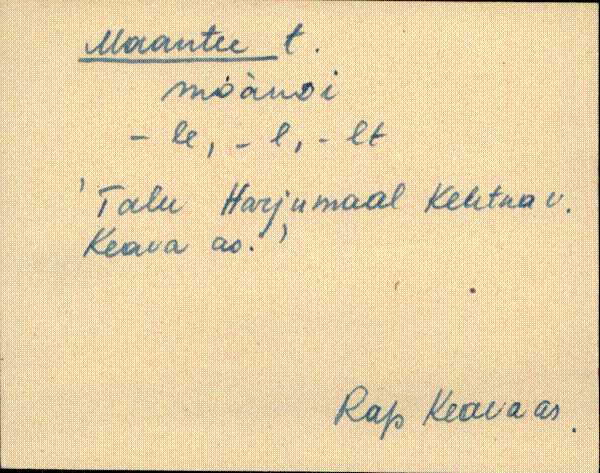 Maantee t.
- le, - l, - lt
'Talu Harjumaal Kehtna v.
Keava as.'
Rap Keava as.